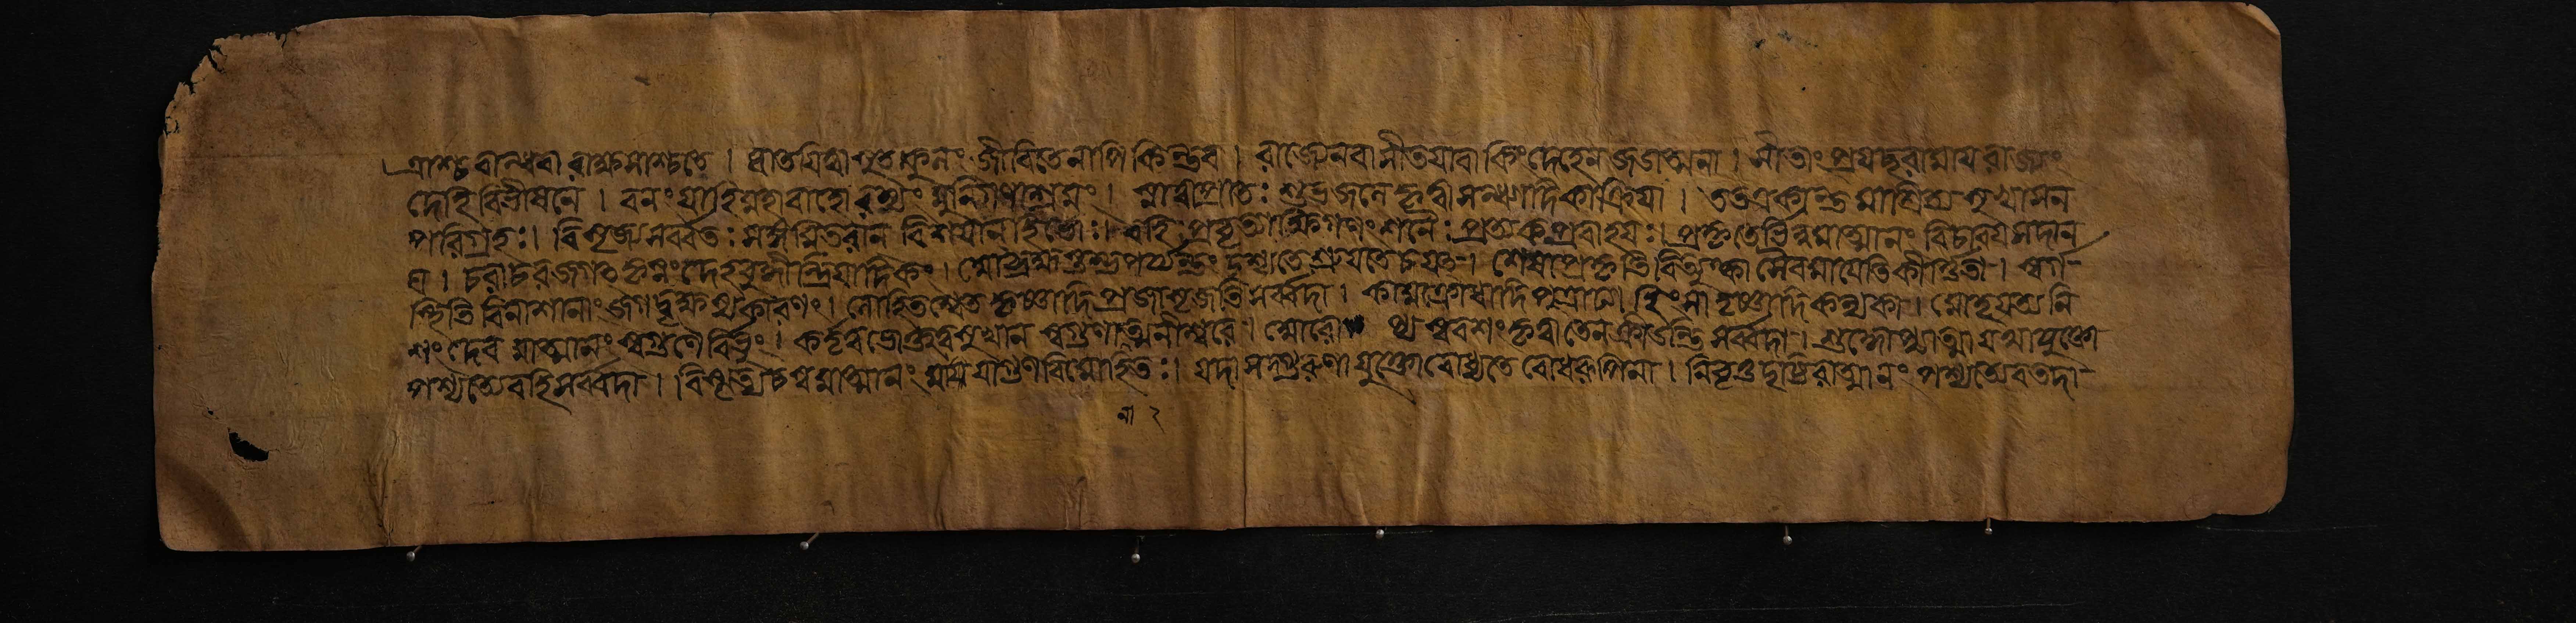 ত্রাশ্চ বান্ধবা রাক্ষসাশ্চতে । ঘাতযিত্বাসুরকুলং জীবিতেনাপি কিন্তব । রাজ্যেনবা সীতযাবা কিংদেহেন জডাত্মনা । সীতাং প্রযচ্ছরামায রাজ্যং
দেহি বিভীষনে । বনং যাহি মহাবাহো রম্যং মুনিগণাশ্রমং । স্নাত্বাপ্রাতঃ শুভ্রজলে কৃত্বা সন্ধ্যাদিকাক্রিযা । ততএকান্তমাশ্রিত্য সুখাসন
পরিগ্রহঃ । বিসৃজ্য সর্ব্বতঃ সঙ্গমিতরান বিশযান বহিঃ । বহি প্রবৃত্তাক্ষগণং শনৈঃ প্রত্যক প্রবাহযঃ । প্রকৃতের্ভিন্নমাত্মানং বিচারয সদান
ঘা । চরাচর জগত কৃত্স্নং দেহবুদ্ধীন্দ্রিযাদিকং । আব্রহ্মস্তম্ভ পর্য্যন্তং দৃশ্যতে শ্রুযতে চযত । শেষাপ্রকৃতি রিত্যুক্তা সৈবমাযেতি কীর্ত্তিতা । স্বর্গ
স্থিতি বিনাশানাং জগদ্বৃক্ষস্য কারণং । লোহিতশ্বেত কৃষ্ণাদি প্রজাসৃজতি সর্ব্বদা । কামক্রোধাদি পুত্রাদি হিংসা তৃষ্ণাদি কন্যকা । মোহযত্যনি
শং দেব মাত্মানং স্বগুণৈ র্বিভুং । কর্তৃত্ব ভোক্তৃত্ব মুখান স্বগুণাত্মনীশ্বরে । আরোপ্য স্ববশং কৃত্বা তেন ক্রীডন্তি সর্ব্বদা । শুদ্ধোপ্যাত্মা যআযুক্তো
পশ্যত্যেবহি সর্ব্বদা । বিস্মৃত্যচ স্বমাত্মানং মাযাগুণবিমোহিতঃ । যদা সদ্গুরুণা যুক্তো বোধ্যতে বোধরূপিনা । নিবৃত্তদৃষ্টিরাত্মানং পশ্যত্যেবতদা